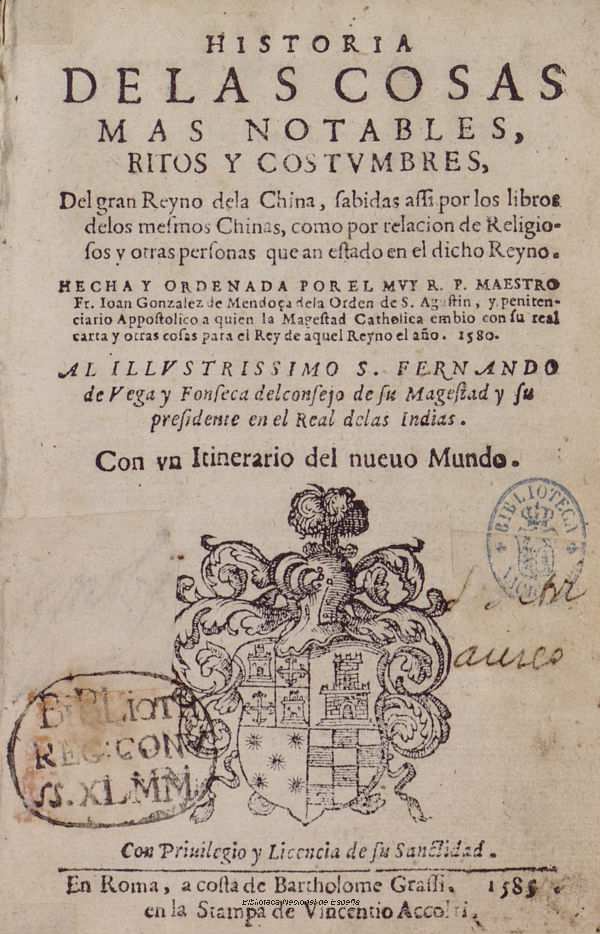 HISTORIA
DE LAS COSAS
MAS NOTABLES,
RITOS Y COSTVMBRES,
Del gran Reyno dela China, sabidas assi por los libros
delos mesmos Chinas, como por relacion de Religio-
sos y otras personas que an estado en el dicho Reyno.
HECHA Y ORDENADA POR EL MVY R. P. MAESTRO
Fr. Ioan Gonzalez de Mendoça dela Orden de S. Agustin, y peniten-
ciario Appostolico a quien la Magestad Catholica embio con su real
carta y otras cosas para el Rey de aquel Reyno el año. 1580.
AL ILLVSTRISSIMO S. FERNANDO
de Vega y Fonseca del consejo de su Magestad y su
presidente en el Real delas Indias.
Con vn Itinerario del nueuo Mundo.
BIBLIOTECA
aureo
BIBLIOT
REG. CON
SS. XLMM
Con Priuilegio y Licencia de su Sanctidad.
En Roma, a costa de Bartholome Grassi. 1585.
Biblioteca Nacional de España
en la Stampa de Vincentio Accolti.